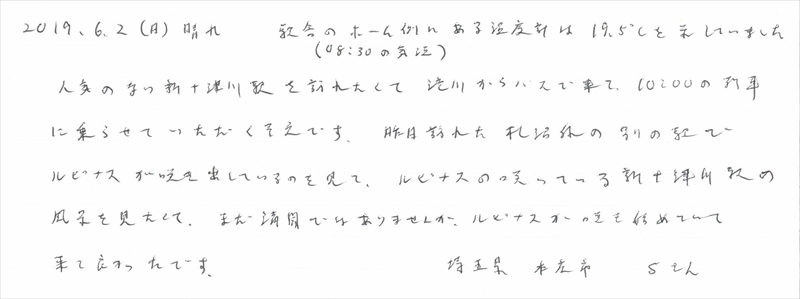 2019.6.2(日)晴れ 駅舎のホーム側にある温度計は19.5℃を示していました
(08:30の気温)
人気のない新十津川駅を訪れたくて滝川からバスで来て、10:00の列車
に乗らせていただく予定です。昨日訪れた札沼線の別の駅で
ルピナスが咲き出しているのを見て、ルピナスの咲いている新十津川駅の
風景を見たくて。まだ満開ではありませんが、ルピナスが咲き始めていて
来て良かったです。 埼玉県 本庄市 Sさん